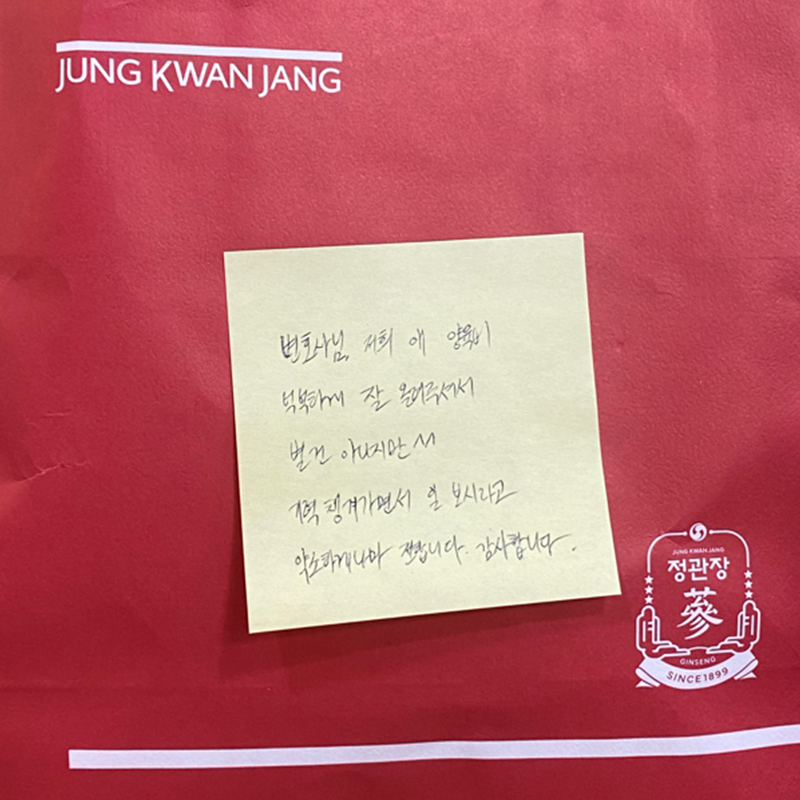 JUNG KWAN JANG
변호사님, 저희 애 양육비
넉넉하게 잘 올려주셔서
별건 아니지만서
기력 챙겨가면서 일 보시라고
약소하게나마 전합니다. 감사합니다.
JUNG KWAN JANG
정관장
蔘
GINSENG
SINCE 1899